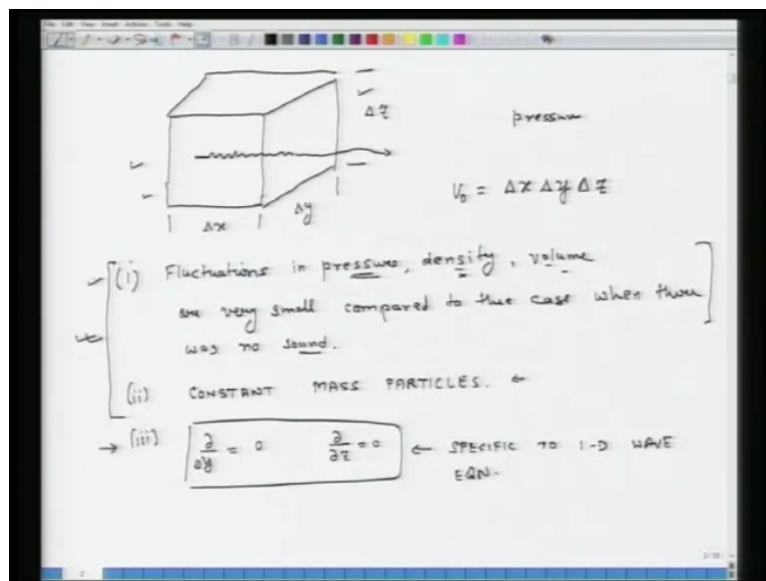 File Edit View Insert Actions Tools Help
Δz
pressure
V₀ = Δx Δy Δz
Δx
Δy
(i) Fluctuations in pressure, density, volume
are very small compared to the case when there
was no sound.
(ii) CONSTANT MASS PARTICLES. ←
→ (iii) ∂/∂y = 0 ∂/∂z = 0 ← SPECIFIC TO 1-D WAVE
EQN.
2